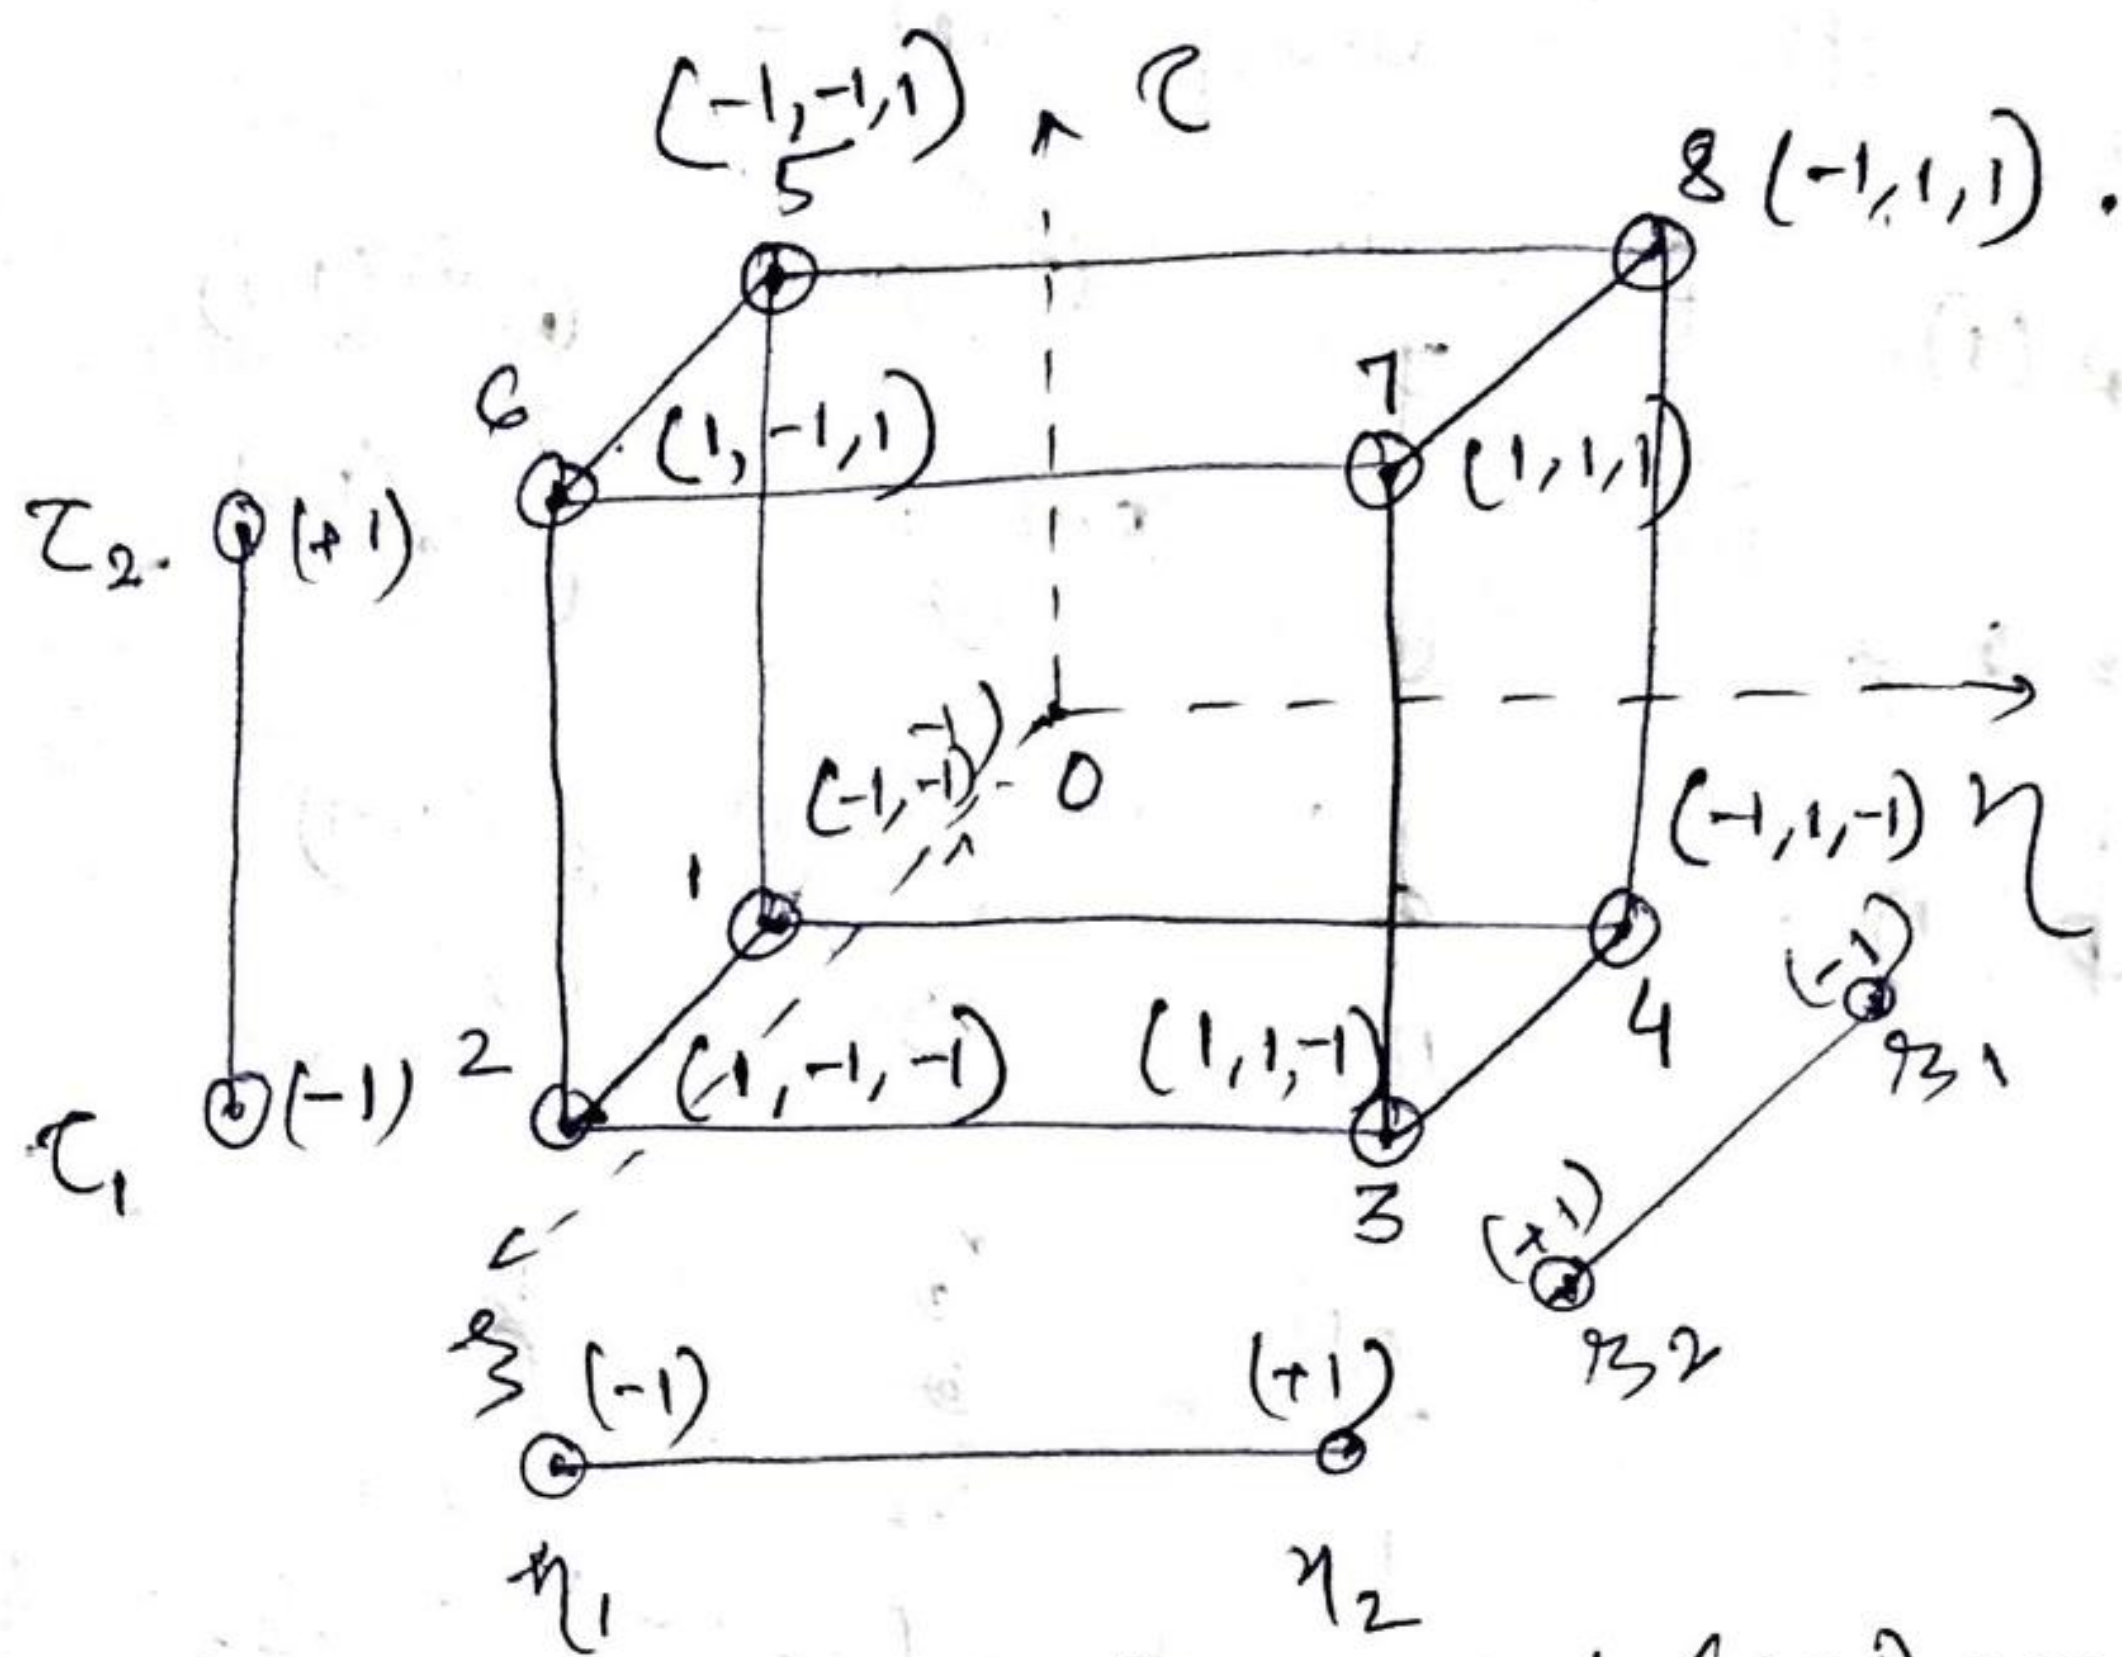 (-1,-1,1) τ
5
8 (-1,1,1).
6 (1,-1,1)
7 (1,1,1)
τ2. (+1)
(-1,-1,-1)
0
(-1,1,-1) η
1
(-1)
4
ξ1
2 (1,-1,-1) (1,1,-1)
τ1 (-1)
3
(+1)
ξ2
ξ (-1) (+1)
η1 η2